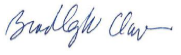 Bradley W Clark